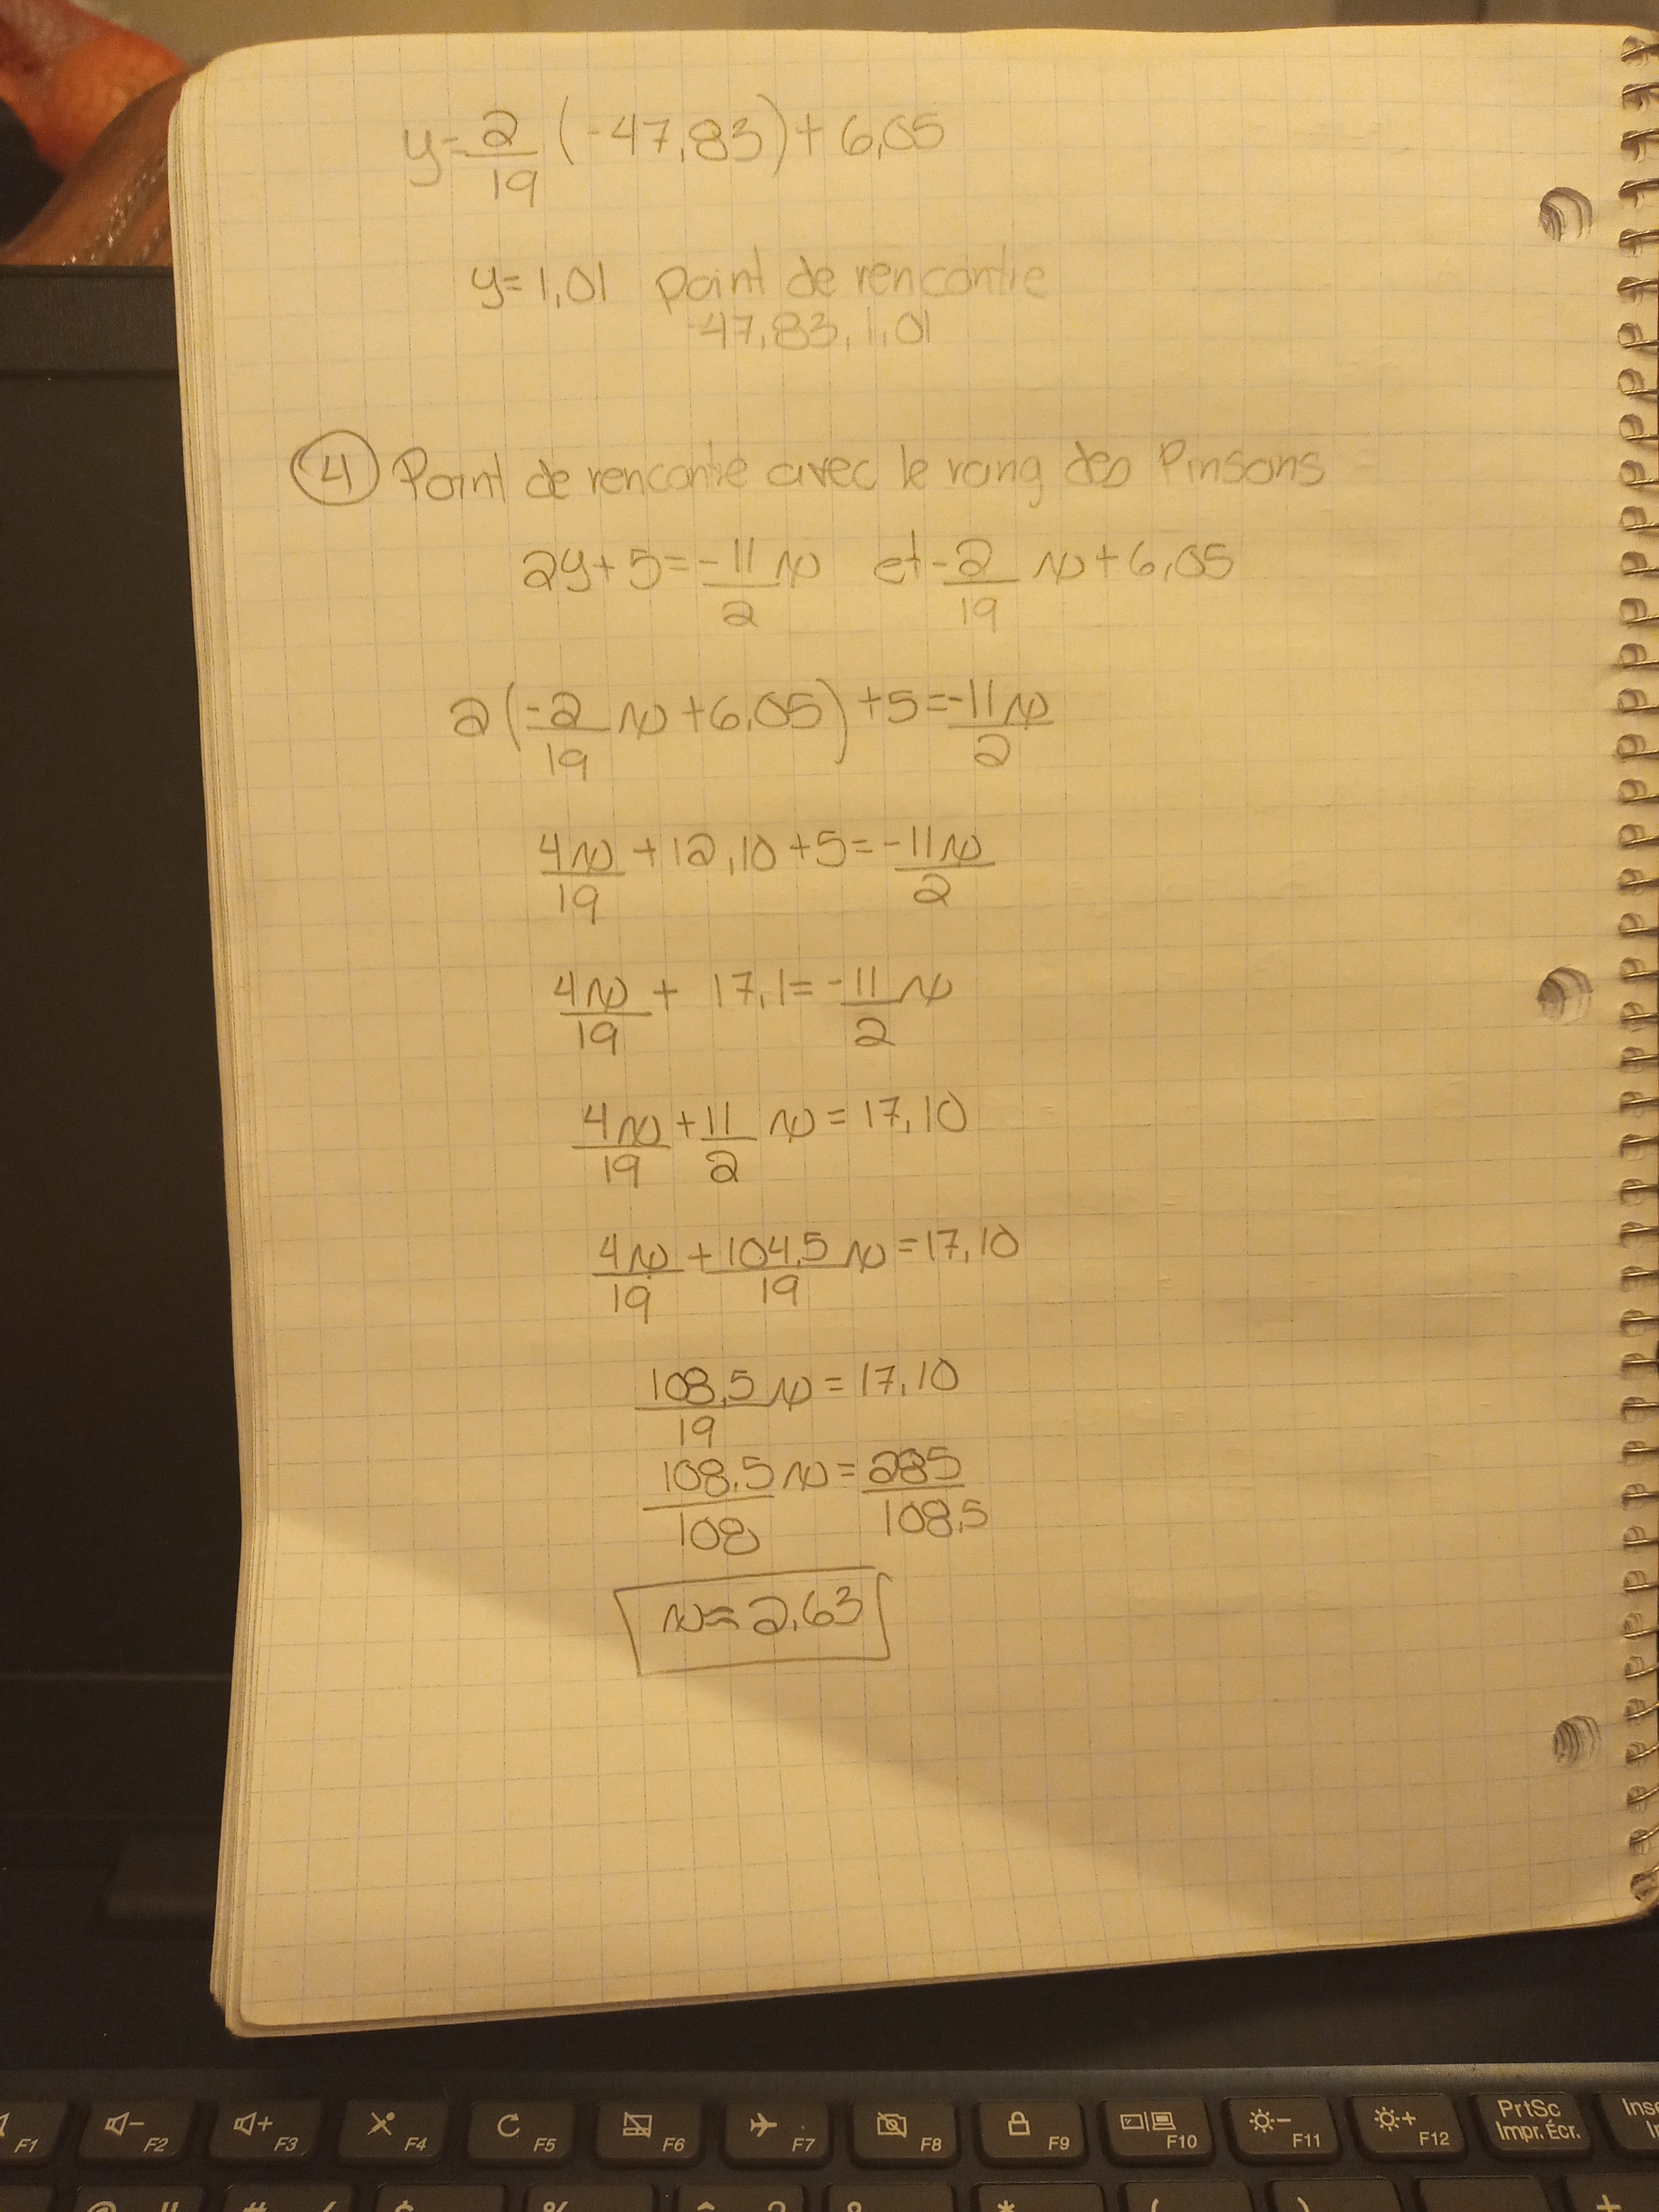 y=2/19 (-47,83)+6,05
y=1,01 Point de rencontre
-47,83, 1,01
4 Point de rencontre avec le rang des Pinsons
2y+5=-11/2 x et -2/19 x+6,05
2(-2/19 x+6,05)+5=-11x/2
4x/19+12,10+5=-11x/2
4x/19+17,1=-11/2 x
4x/19+11/2 x=17,10
4x/19+104,5/19 x=17,10
108,5/19 x=17,10
108,5/108 x=285/108,5
x=2,63
F1 F2 F3 F4 F5 F6 F7 F8 F9 F10 F11 F12 PrtSc
Impr.Écr.